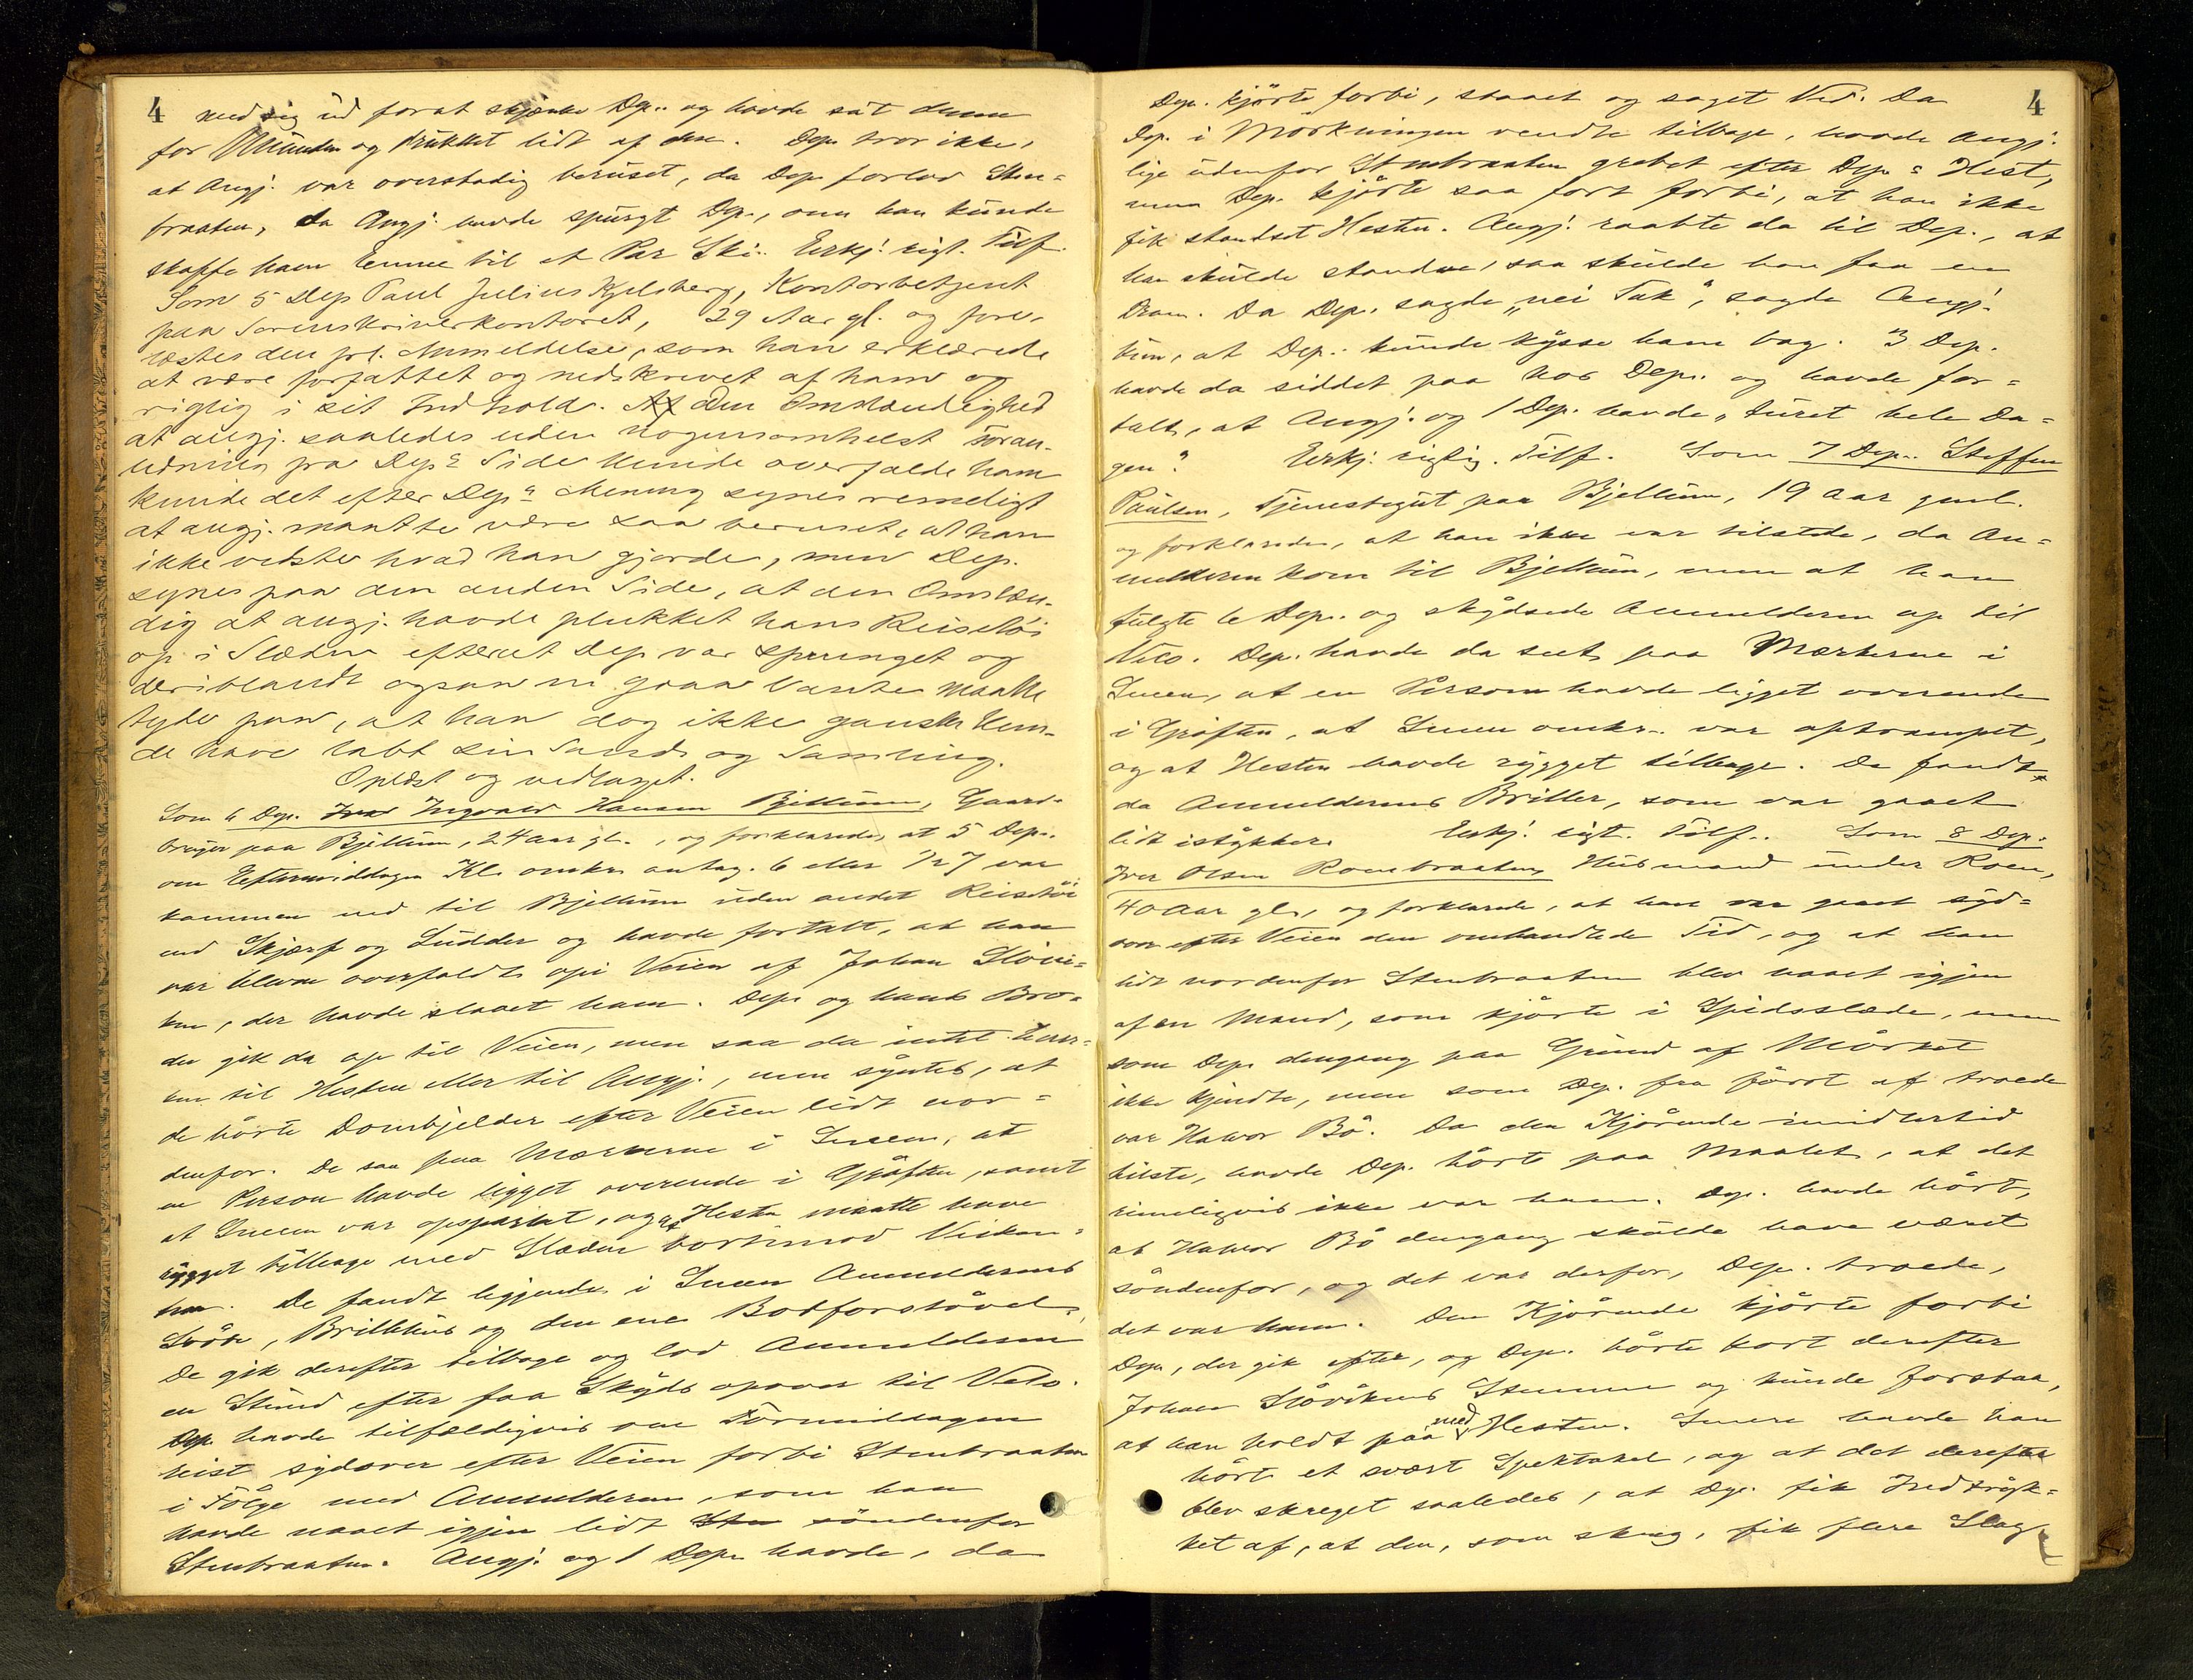 4
med sig ud forat skjænke Dep. og havde sat denne
for Munden og drukket lidt af den. Dep. tror ikke,
at Angj. var overstadig beruset, da Dep. forlod Sten-
braaten, da Angj. havde spurgt Dep., om han kunde
skaffe ham Emne til et Par Ski. Erkj. rigt. Tilf.
Som 5 Dep Paul Julius Kjelsberg, Kontorbetjent
paa Sorenskriverkontoret, 29 Aar gl. og fore-
læstes den prl. Anmeldelse, som han erklærede
at være forfattet og nedskrevet af ham og
rigtig i sit Indhold. Af den Omstændighed
at angj. saaledes uden nogensomhelst Foran-
ledning fra Deps Side kunde overfalde ham
kunde det efter Deps Mening synes rimeligt
at angj. maatte være saa beruset, at han
ikke vidste hvad han gjorde, men Dep.
synes paa den anden Side, at den Omstæn-
dig at angj. havde plukket hans Reisetøi
op i Slæden efterat Dep var sprunget og
deriblandt ogsaa en graa Vante maatte
tyde paa, at han dog ikke ganske kun-
de have tabt sin Sands og Samling.
Oplæst og vedtaget.
Som 6 Dep. Ingvald Hansen Bjellum, Gaard-
bruger paa Bjellum, 24 aar gl., og forklarede, at 5 Dep.
om Eftermiddagen Kl. omkr. antag. 6 eller 1/2 7 var
kommen ned til Bjellum uden andet Reisetøi
end Skjærf og Ludder og havde fortalt, at han
var bleven overfaldt opi Veien af Johan Sløvi-
ken, der havde slaaet ham. Dep. og hans Bro-
der gik da op til Veien, men saa da intet hver-
ken til Hesten eller til Angj., men syntes, at
de hørte Dombjelder efter Veien lidt nor-
denfor. De saa paa Mærkerne i Sneen, at
en Person havde ligget overende i Grøften, samt
at Sneen var opsparket, og at Hesten maatte have
rygget tilbage med Slæden bortimod Veikan-
ten. De fandt liggende i Sneen Anmelderens
Svøbe, Brillehus og den ene Botforstøvel.
De gik derefter tilbage og lod Anmelderen
en Stund efter faa Skyds opover til Velo.
Dep. havde tilfældigvis om Formiddagen
reist sydover efter Veien forbi Stenbraaten
i Følge med Anmelderen, som han
havde naaet igjen lidt søndenfor
Stenbraaten. Angj. og 1 Dep. havde, da
4
Dep. kjørte forbi, staaet og saget Ved. Da
Dep. i Mørkningen vendte tilbage, havde Angj.
lige udenfor Stenbraaten grebet efter Deps Hest,
men Dep. kjørte saa fort forbi, at han ikke
fik standset Hesten. Angj. raabte da til Dep., at
han skulde standse, saa skulde han faa en
Dram. Da Dep. sagde „nei Tak“, sagde Angj.
kun, at Dep. kunde kysse ham bag. 3 Dep.
havde da siddet paa hos Dep. og havde for-
talt, at Angj. og 1 Dep. havde „turet hele Da-
gen“. Erkj. rigtig. Tilf. Som 7 Dep. Steffen
Paulsen, Tjenestegut paa Bjellum, 19 Aar gml.
og forklarede, at han ikke var tilstede, da An-
melderen kom til Bjellum, men at han
fulgte 6 Dep. og skydsede Anmelderen op til
Velo. Dep. havde da seet paa Mærkerne i
Sneen, at en Person havde ligget overende
i Grøften, at Sneen omkr. var optrampet,
og at Hesten havde rygget tilbage. De fandt
da Anmelderens Briller, som var gaaet
lidt istykker. Erkj. rigt. Tilf. Som 8 Dep.
Iver Olsen Roenbraaten, Husmand under Roen,
40 Aar gl., og forklarede, at han var gaaet syd-
over efter Veien den omhandlede Tid, og at han
lidt nordenfor Stenbraaten blev naaet igjen
af en Mand, som kjørte i Spidsslæde, men
som Dep. dengang paa Grund af Mørket
ikke kjendte, men som Dep. fra først af troede
var Halvor Bø. Da den Kjørende imidlertid
hilste, havde Dep. hørt paa Maalet, at det
rimeligvis ikke var ham. Dep. havde hørt,
at Halvor Bø dengang skulde have været
søndenfor, og det var derfor, Dep. troede,
det var ham. Den Kjørende kjørte forbi
Dep., der gik efter, og Dep. hørte kort derefter
Johan Sløvikens Stemme og kunde forstaa,
at han holdt paa med Hesten. Senere havde han
hørt et svært Spektakel, og at det derefter
blev skreget saaledes, at Dep. fik Indtryk-
ket af, at den, som skreg, fik flere Slag